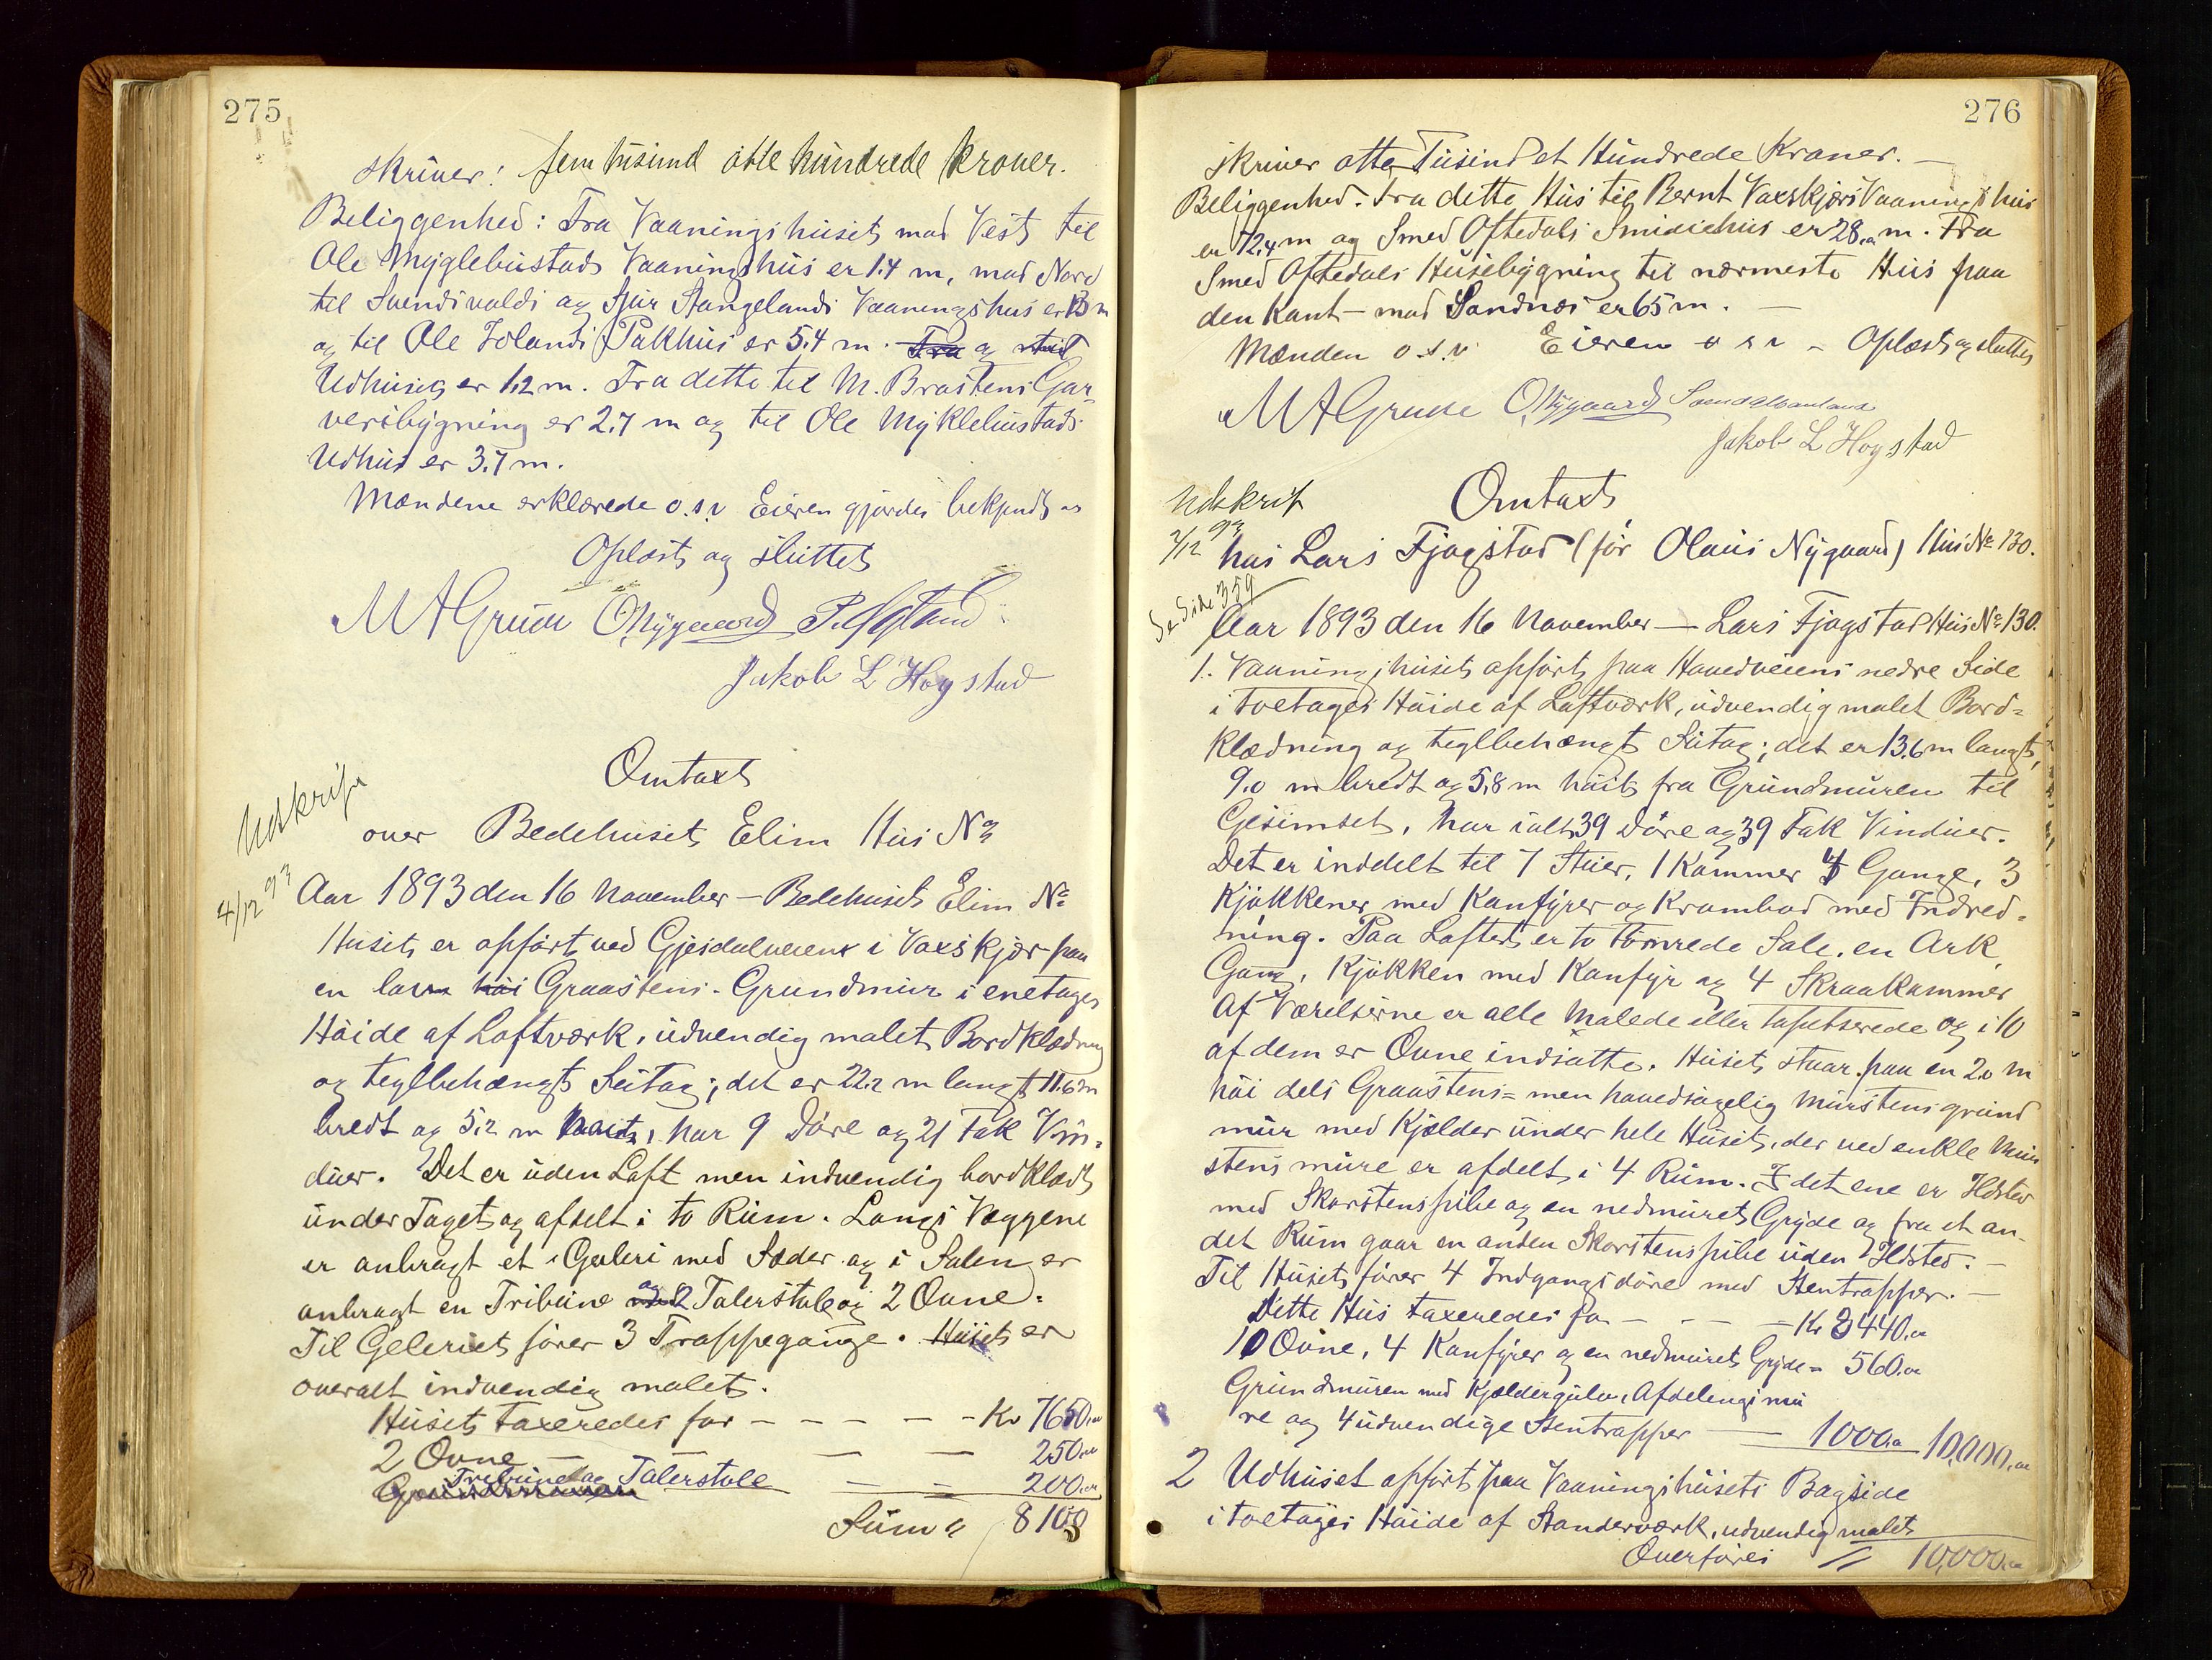 275
skriver: fem tusind otte hundrede kroner.
Beliggenhed: Fra Vaaningshuset mod Vest til
Ole Myglebustads Vaaningshus er 1.4 m, mod Nord
til Svendsvolds og Sjur Stangelands Vaaningshus er 13 m
og til Ole Iolands Pakhus er 5.4 m. Fra og
Udhuset er 1.2 m. Fra dette til M. Brastens Gar-
veribygning er 2,7 m og til Ole Myklebustads
Udhus er 3.7 m.
Mændene erklærede o.s.v Eieren gjordes bekjendt
Oplæst og sluttet
M A Grude O. Nygaard
Jakob L Hogstad
Omtaxt
Udskrift
4/12 93
over Bedehuset Elim Hus No
Aar 1893 den 16 November – Bedehuset Elim No
Huset er opført ved Gjesdalveiens i Vaxskjær paa
en lav høi Graastens-Grundmur i enetages
Høide af Loftværk, udvendig malet Bordklædning
og teglbehængt Sutag; det er 22.2 m langt 11.6 m
bredt og 5.2 m høit, har 9 Døre og 21 Fak Vin-
duer. Det er uden Loft men indvendig bordklædt
under Taget og afdelt i to Rum. Langs Væggene
er anbragt et Galeri med Sæder og i Salen er
anbragt en Tribune og 2 Talerstole og 2 Ovne.
Til Geleriet fører 3 Trappegange. Huset er
overalt indvendig malet.
Huset taxeredes for – – – – – Kr 7650.00
2 Ovne – — — 250.00
Grundmuren Tribune og Talerstole = = 200.00
Sum " 8100
276
skriver otte Tusind et Hundrede Kroner. —
Beliggenhed. Fra dette Hus til Bernt Vaxskjærs Vaaningshus
er 72,4 m og Smed Oftedals Smidiehus er 28.0 m. Fra
Smed Oftedals Husebygning til nærmeste Hus paa
den Kant – mod Sandnæs er 65 m. —
Mænden o.s.v Eieren o s v – Oplæst og sluttet
M A Grude O. Nygaard
Jakob L Hogstad
Udskrift
2/12 93
Omtaxt
hos Lars Fjogstad (før Olaus Nygaard) Hus No 130.
Se Side 359
Aar 1893 den 16 November — Lars Fjogstad Hus No 130.
1. Vaaningshuset opført paa Hovedveiens nedre Side
i toetages Høide af Loftværk, udvendig malet Bord=
klædning og teglbehængt Sutag; det er 13.6 m langt,
9.0 m bredt og 5,8 m høit fra Grundmuren til
Gesimset, har ialt 39 Døre og 39 Fak Vinduer.
Det er inddelt til 7 Stuer, 1 Kammer 4 Gange, 3
Kjøkkener med Komfyrer og Krambod med Indred=
ning. Paa Loftet er to tømrede Sale, en Ark,
Gang, Kjøkken med Komfyr og 4 Skraakammer
Af Værelserne er alle malede eller tapetserede og i 10
af dem er Ovne indsatte. Huset staar paa en 2.0 m
høi dels Graastens= men hovedsagelig Murstensgrund
mur med Kjelder under hele Huset, der ved enkle Mur
stens mure er afdelt i 4 Rum. I det ene er Ildsted
med Skorstenspibe og en nedmuret Gryde og fra et an-
det Rum gaar en anden Skorstenspibe uden Ildsted. –
Til Huset fører 4 Indgangsdøre med Stentrapper. —
Dette Hus taxeredes for – – – – Kr 8440.00
10 Ovne, 4 Komfyrer og en nedmuret Gryde = 560.00
Grundmuren med Kjeldergulv, Afdelingsmu
re og 4 udvendige Stentrapper — 1000.00 10,000.00
2 Udhuset opført paa Vaaningshusets Bagside
i toetages Høide af Standerværk, udvendig malet
Overføres = 10,000.00